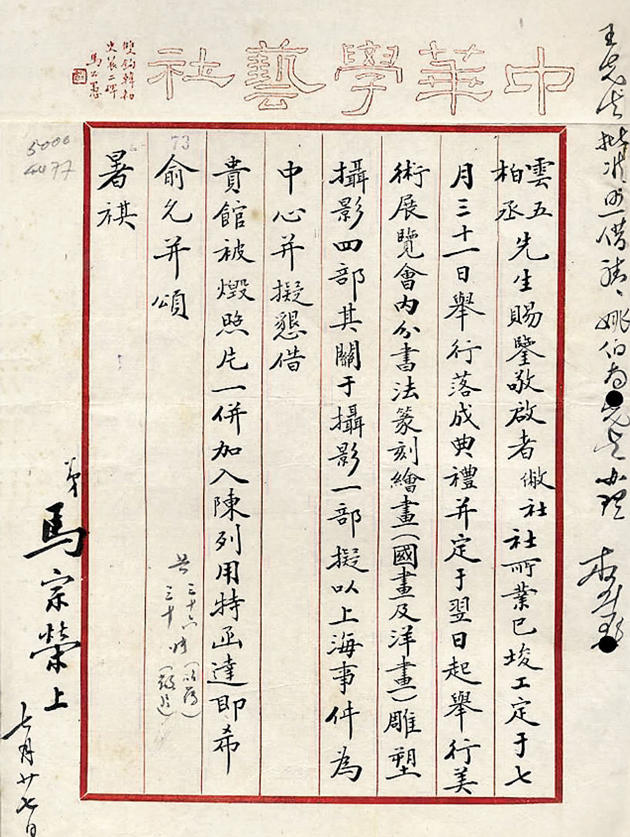 中華學藝社
雙鉤韓勑
史晨二碑
馬公愚
王先生批准可借請姚伯南先生辦理
雲五
柏丞
先生賜鑒敬啟者敝社社所業已竣工定于七
月三十一日舉行落成典禮并定于翌日起舉行美
術展覽會內分書法篆刻繪畫(國畫及洋畫)雕塑
攝影四部其關于攝影一部擬以上海事件為
中心并擬懇借
貴館被燬照片一併加入陳列用特函達即希
俞允并頌
暑祺
弟馬宗榮上
七月廿七日
共
三十六
三十
73
5000
4077